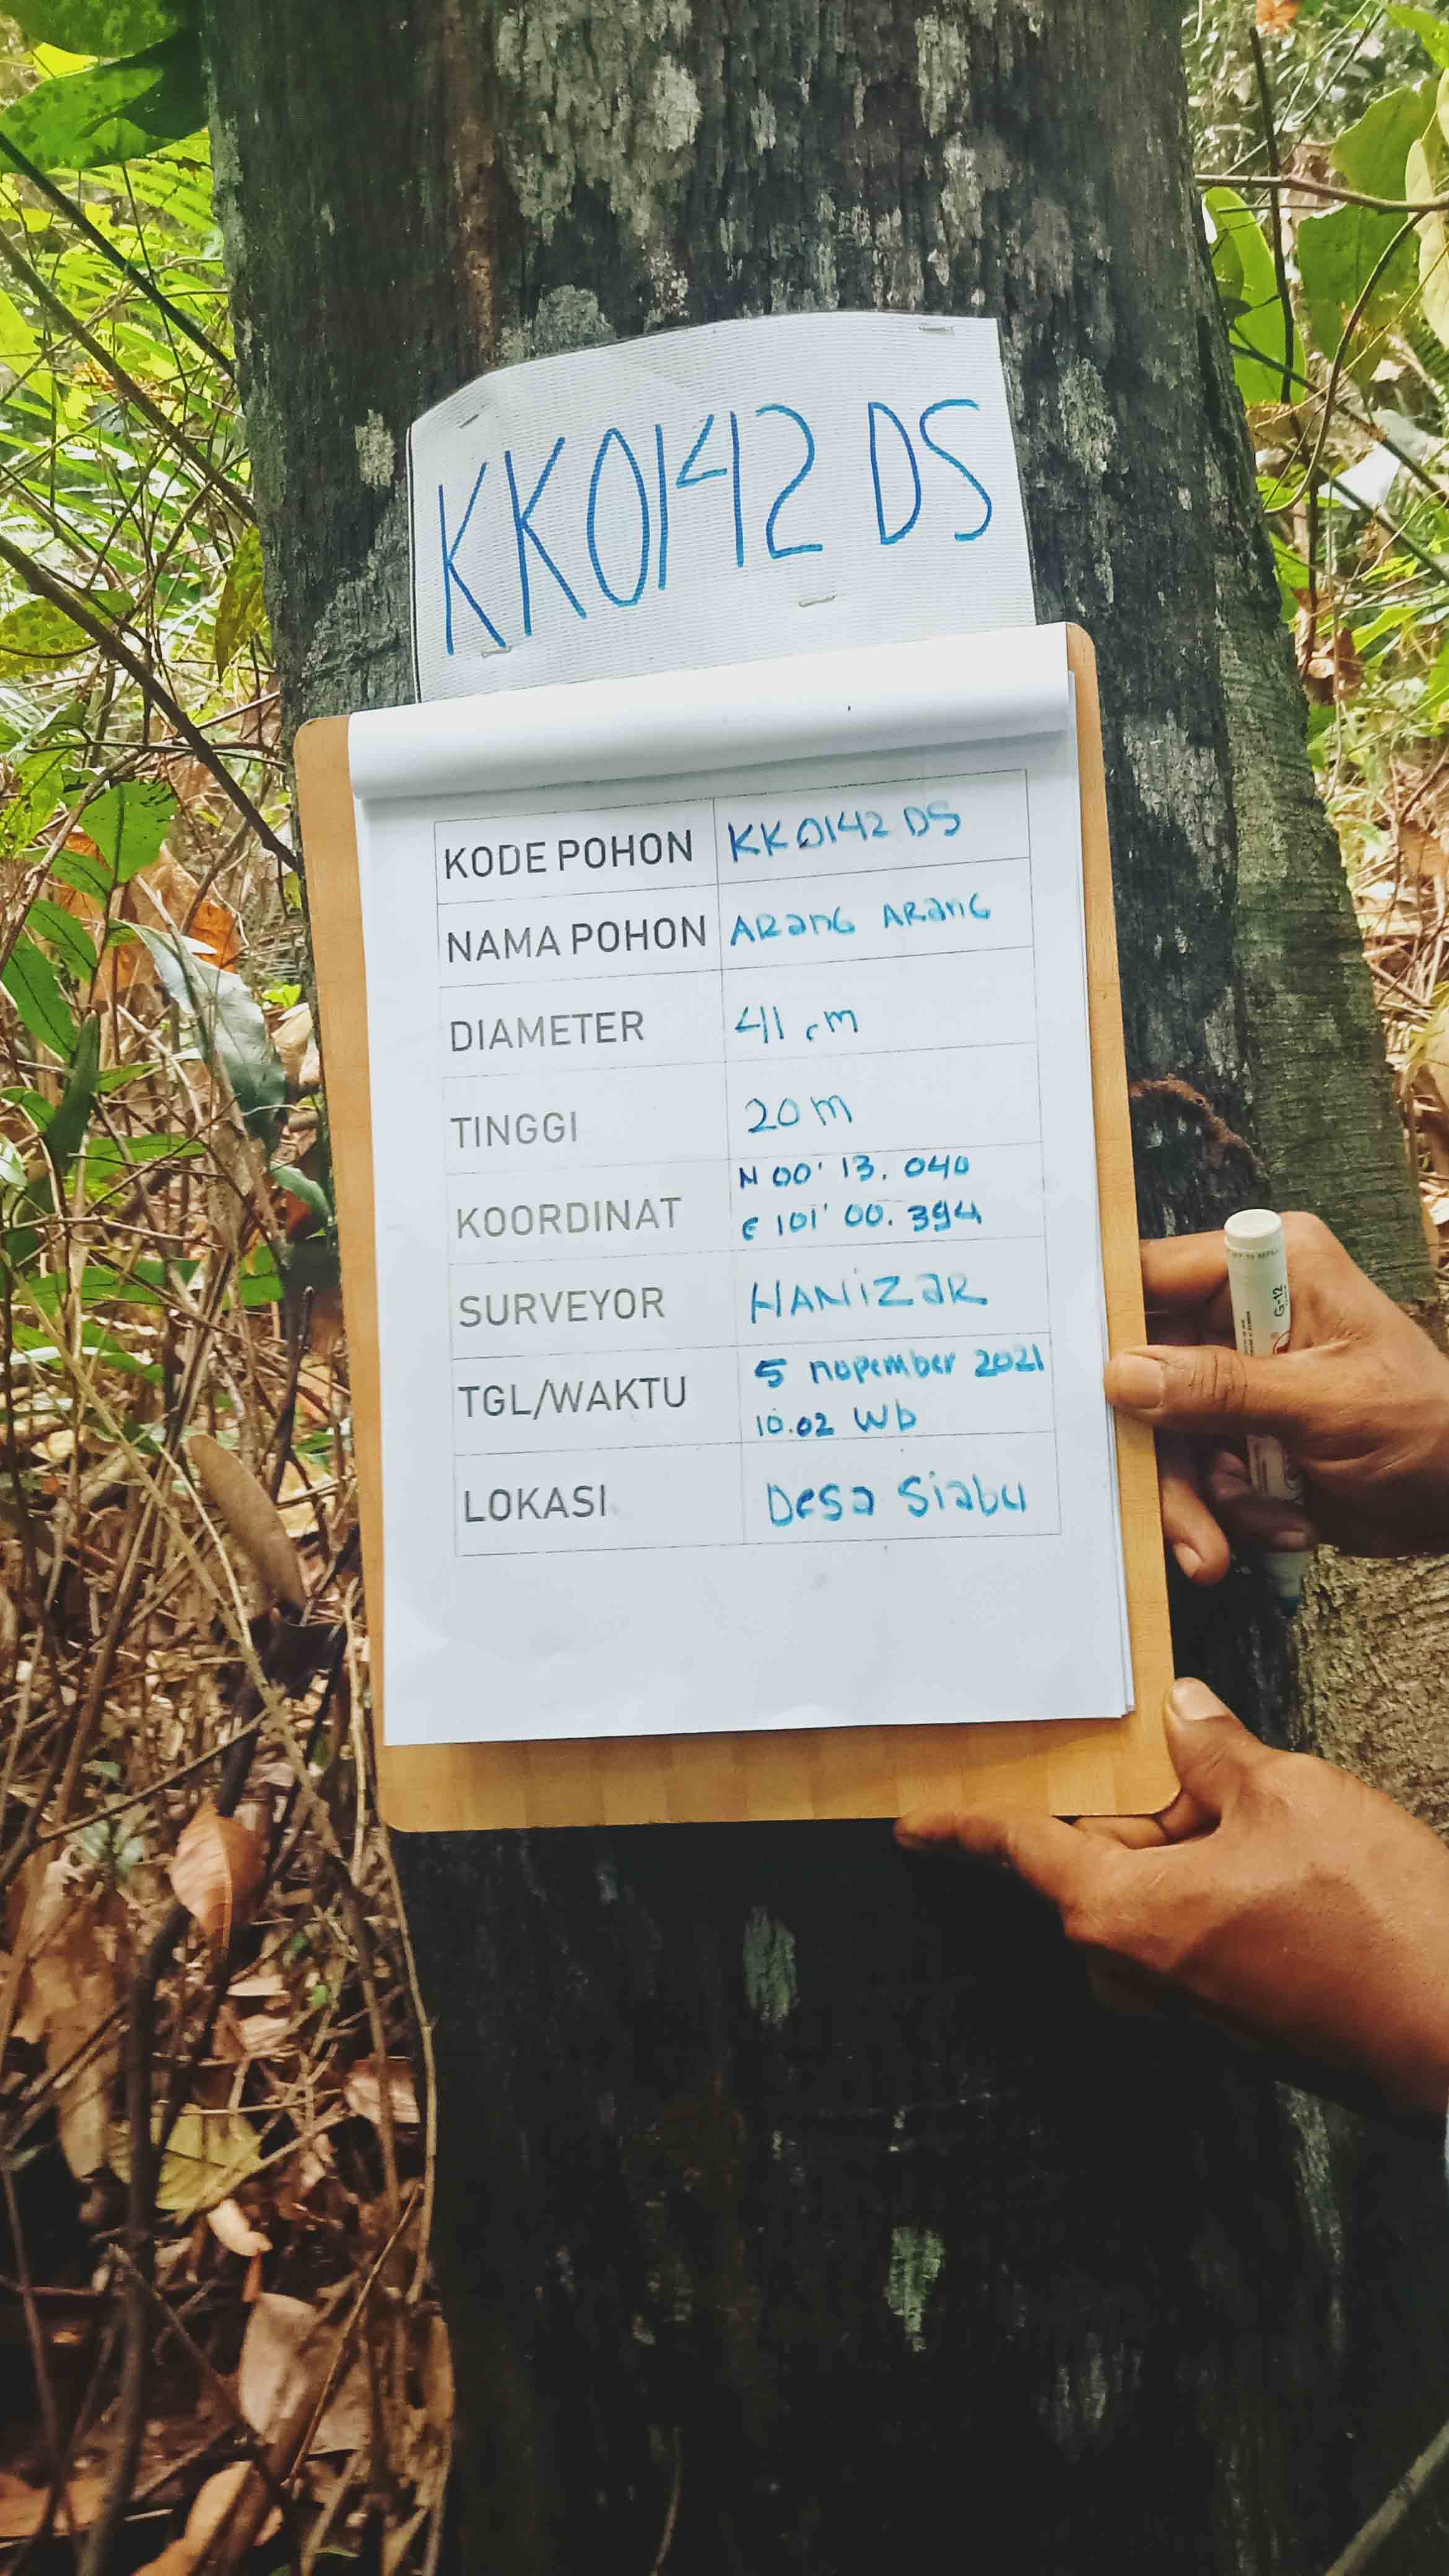 KK0142 DS
KODE POHON KK0142 DS
NAMA POHON ARanG ARanG
DIAMETER 41 cm
TINGGI 20 m
KOORDINAT N 00' 13. 040
E 101' 00. 394
SURVEYOR HANiZaR
TGL/WAKTU 5 nopember 2021
10.02 Wb
LOKASI Desa Siabu
G-12